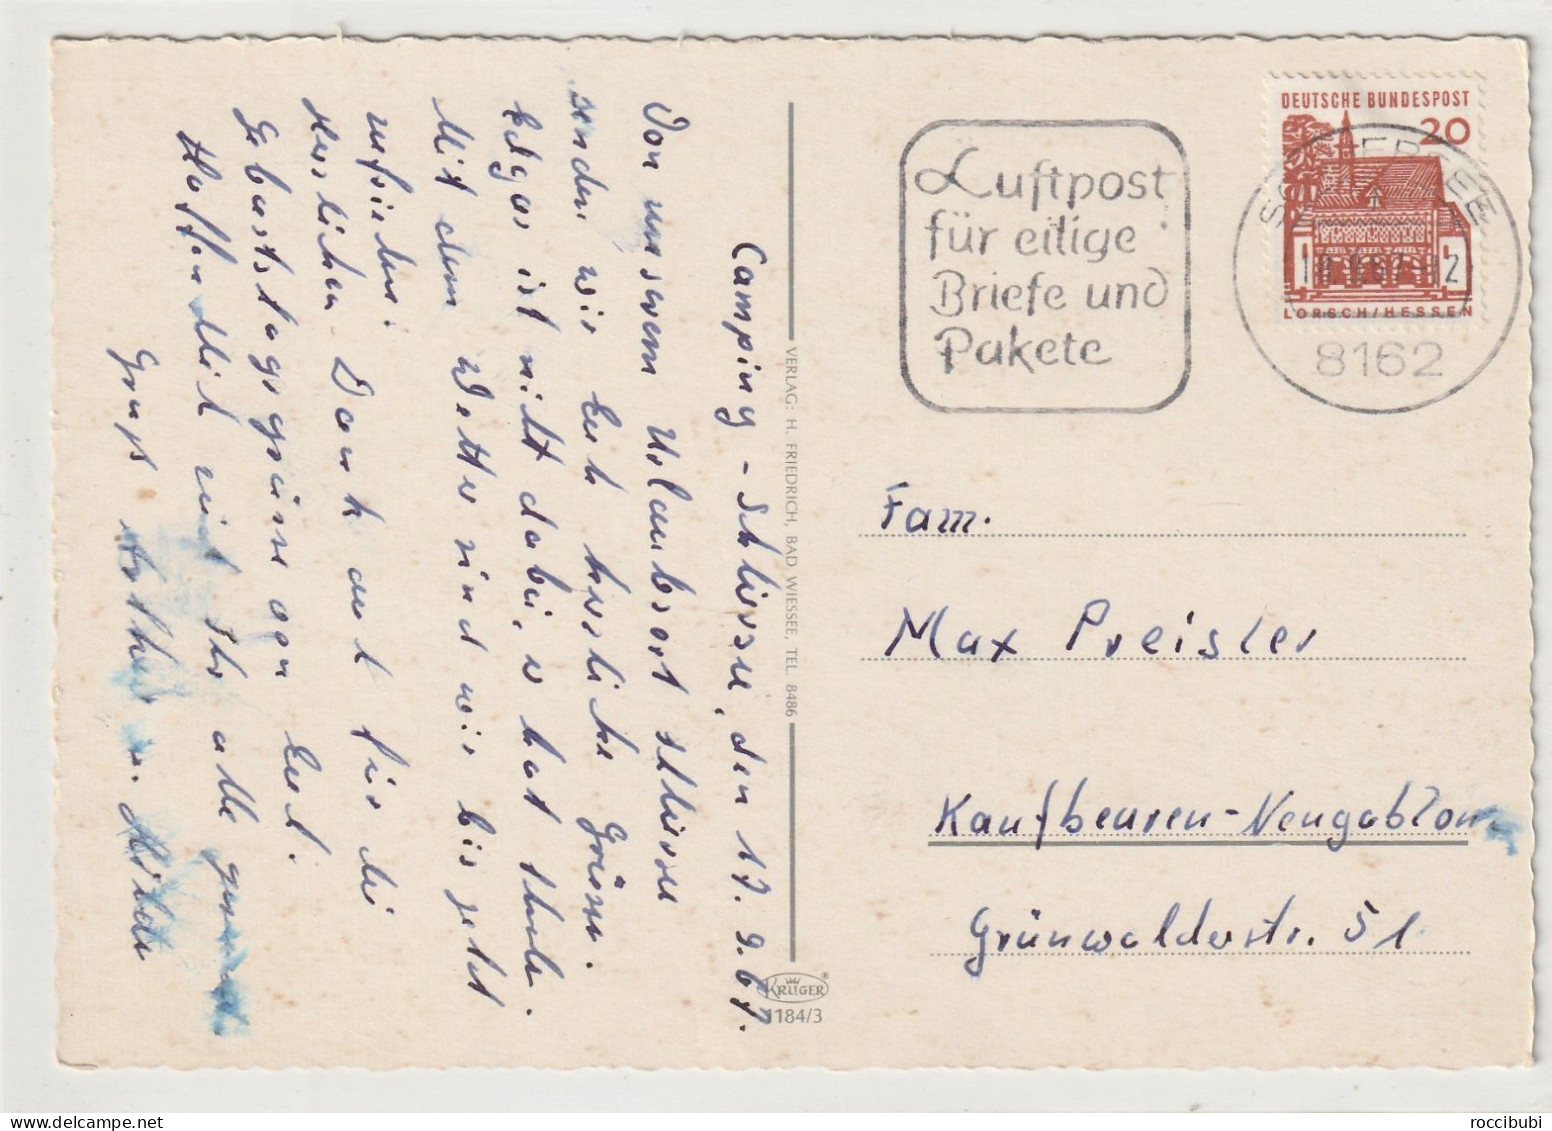 Camping - Schliersee, den 17. 9. 67.
Von unserem Urlaubsort Schliersee
senden wir Euch herzliche Grüsse.
ist nicht dabei, er hat Schule.
Mit dem Wetter sind wir bis jetzt
zufrieden.
Herzlichen Dank auch für die
Geburtstagsgrüsse von Euch.
Hoffentlich seid Ihr alle gesund.
Gruß
VERLAG: H. FRIEDRICH, BAD WIESSEE, TEL. 8486
KRÜGER
1184/3
Luftpost
für eilige
Briefe und
Pakete
DEUTSCHE BUNDESPOST
20
LORSCH/HESSEN
SCHLIERSEE
8162
Fam.
Max Preisler
Kaufbeuren-Neugablonz
Grünwalderstr. 51
roccibubi